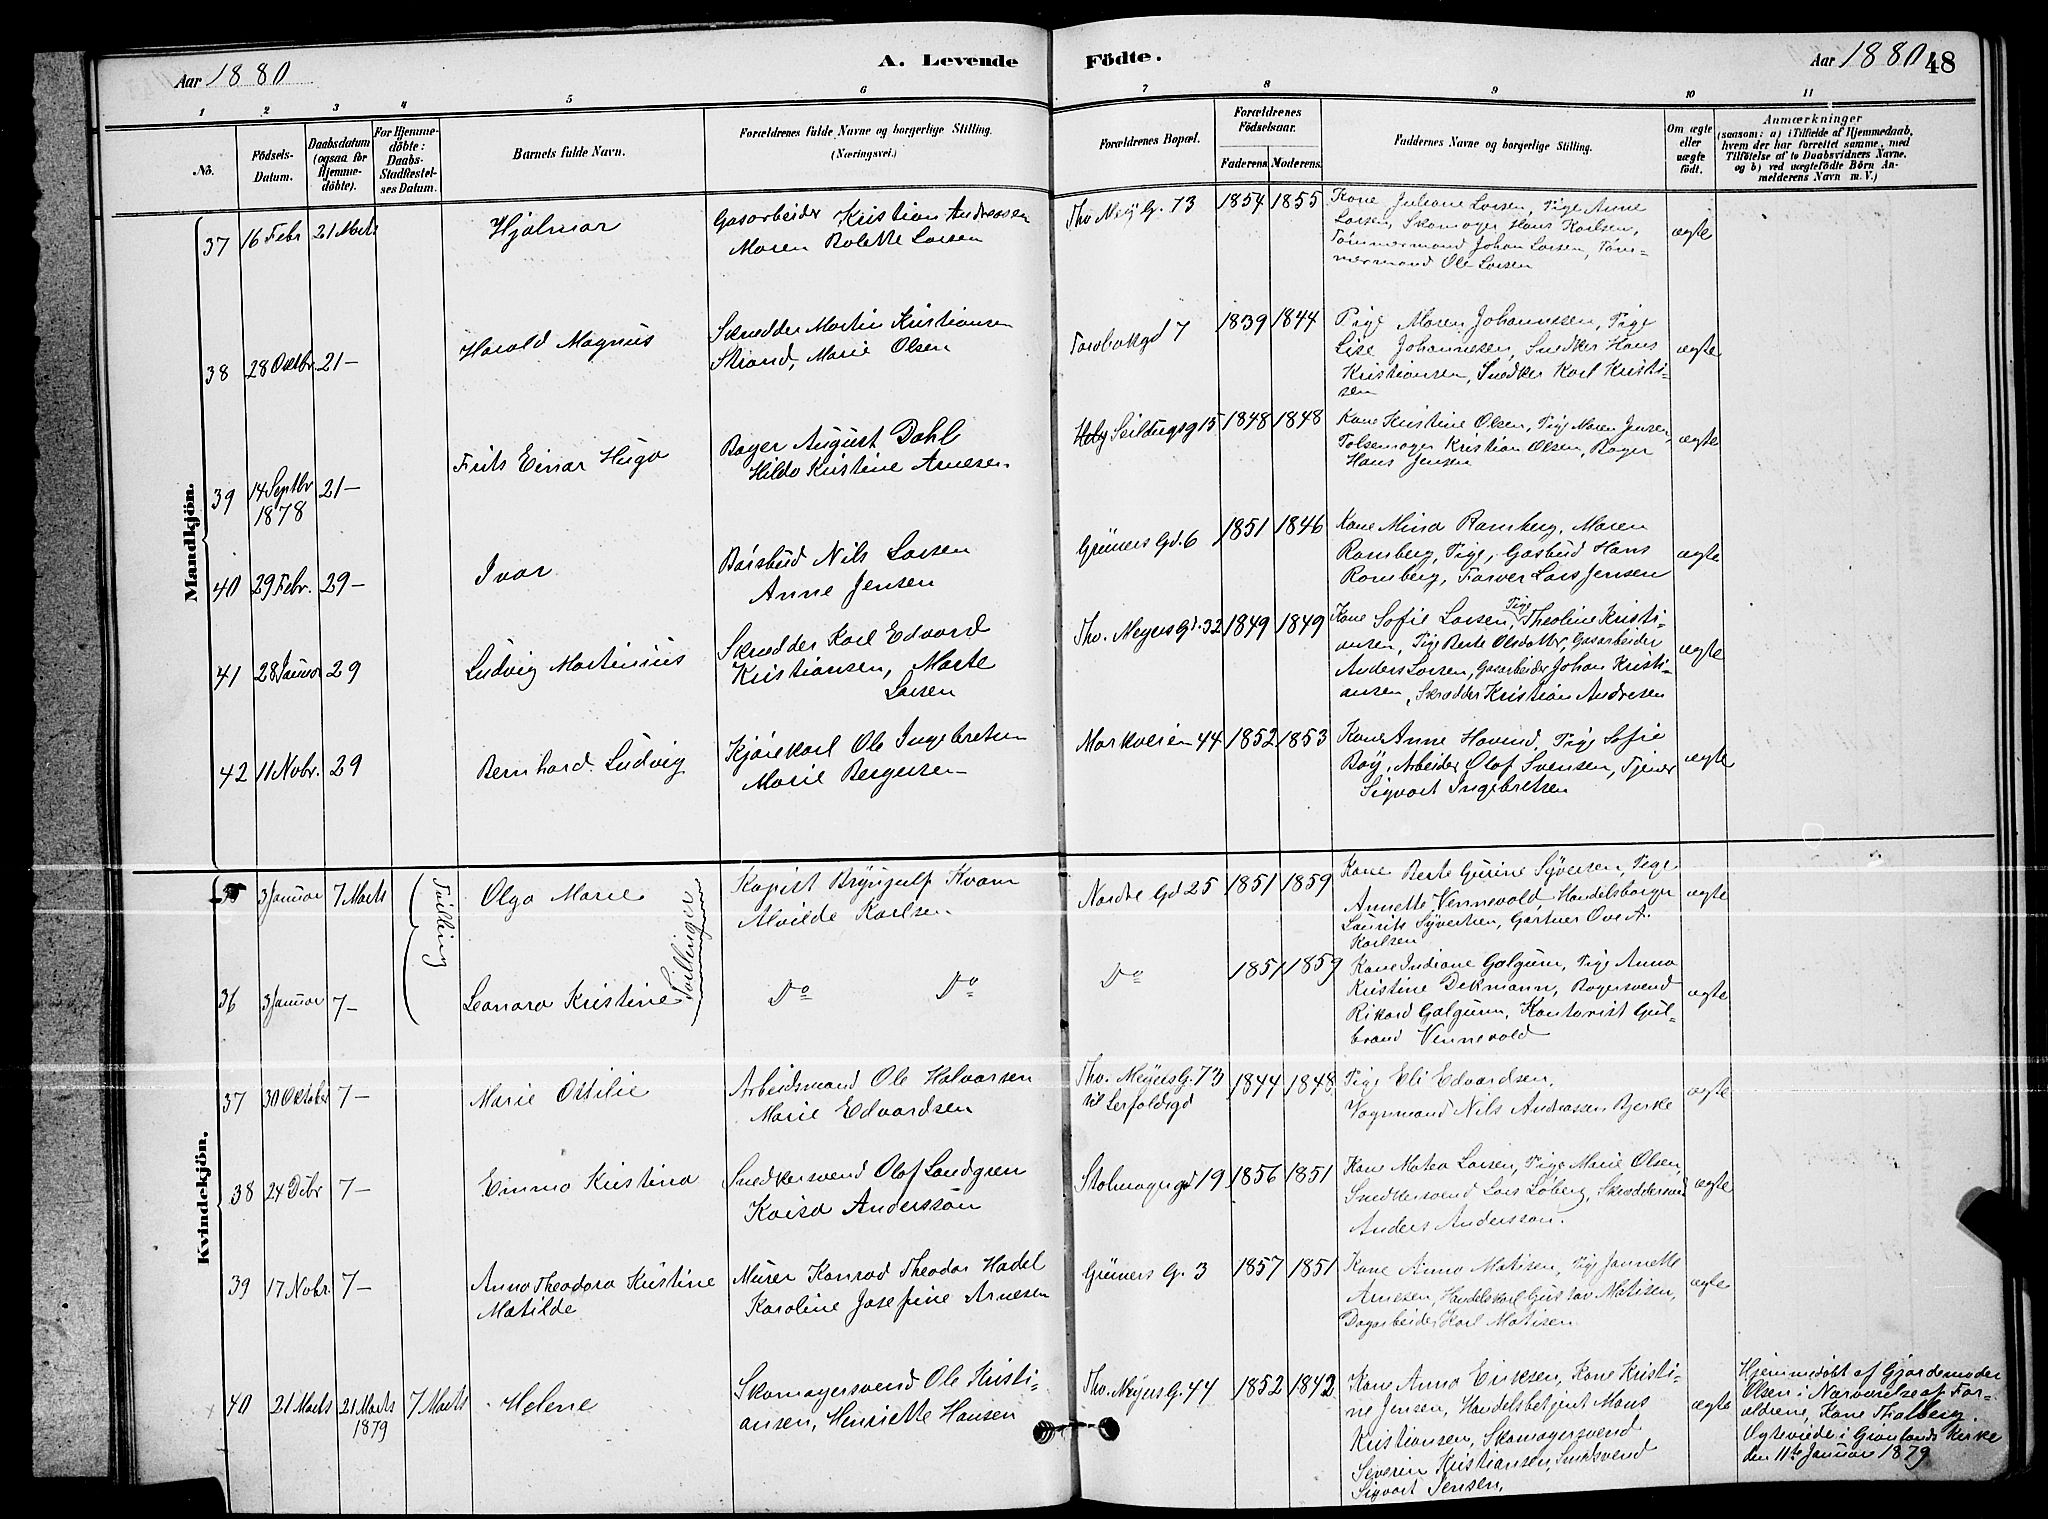 Aar 1880
A. Levende
Födte.
Aar 1880
48
1 2 3 4 5 6 7 8 9 10 11
No.
Födsels-
Datum.
Daabsdatum
(ogsaa for
Hjemme-
döbte).
For Hjemme-
döbte:
Daabs-
Stadfæstel-
ses Datum.
Barnets fulde Navn.
Forældrenes fulde Navne og borgerlige Stilling.
(Næringsvei.)
Forældrenes Bopæl.
Forældrenes
Födselsaar.
Faderens. Moderens.
Faddernes Navne og borgerlige Stilling.
Om ægte
eller
uægte
födt.
Anmærkninger
(saasom: a) i Tilfælde af Hjemmedaab,
hvem der har forrettet samme, med
Tilföielse af to Daabsvidners Navne,
og b) ved uægtefödte Börn An-
melderens Navn m. V.)
Mandkjön.
37 16 Febr 21 Mats
Hjalmar
Gasarbeider Kristian Andreasen
Maren Bolette Larsen
Thv Meÿ G. 73
1854 1855
Kone Juliane Larsen, Pige Anne
Larsen, Skomager Hans Karlsen,
Tømmermand Johan Larsen, Tøm-
mermand Ole Larsen
ægte
38 28 Oktbr 21 —
Harald Magnus
Skrædder Martin Kristiansen
Strand, Marie Olsen
7
1839 1844
Pige Maren Johannesen, Pige
Lise Johannesen, Snedker Hans
Kristiansen, Snedker Karl Kristi-
sen
ægte
39 14 Septbr 21 —
1878
Frits Einar Hugo
Bager August Dahl
Hilda Kristine Arnesen
Seilduksg 15
1848 1848
Kone Kristine Olsen, Pige Maren Jensen,
Pølsemager Kristian Olsen, Bager
Hans Jensen
ægte
40 29 Febr. 29 —
Ivar
Børsbud Nils Larsen
Anne Jensen
Grüners Gd. 6
1851 1846
Kone Mina Ramberg, Maren
Romberg, Pige, Gasbud Hans
Romberg, Farver Lars Jensen
ægte
41 28 Januar 29
Ludvig Martinius
Skrædder Karl Edvard
Kristiansen, Marte
Larsen
Thv. Meyers Gd. 32
1849 1849
Kone Sofie Larsen, Pige Theoline Kristi-
ansen, Pige Berte Olsdatter, Gasarbeider
Anders Larsen, Gasarbeider Johan Kristi-
ansen, Skrædder Kristian Andresen
ægte
42 11 Novbr. 29
Bernhard Ludvig
Kjørekarl Ole Ingebretsen
Marie Bergersen
Markveien 44
1852 1853
Kone Anne Havind, Pige Sofie
Böÿ, Arbeider Olaf Svensen, Tjener
Sigvart Ingebretsen
ægte
Kvindekjön.
35 3 Januar 7 Mats
Tvilling
Olga Marie
Tvillinger
Kopist Brynjulf Kvam
Alvilde Karlsen
Nordre Gd 25
1851 1859
Kone Berte Gurine Syversen, Pige
Annette Vennevold, Handelsborger
Laurits Syvertsen, Gartner Ove A.
Karlsen
ægte
36 3 Januar 7 —
Leonara Kristine
Do Do
Do
1851 1859
Kone Indiane Galgum, Pige Anna
Kristine Dekmann, Bagersvend
Rikard Galgum, Kontorist Gul-
brand Vennevold
ægte
37 30 Oktober 7 —
Marie Ottilie
Arbeidsmand Ole Halvorsen
Marie Edvardsen
Thv. Meyers G. 73
til Lerfoldsgd
1844 1848
Pige Eli Edvardsen,
Vognmand Nils Andreassen Bjerke
ægte
38 24 Debr 7 —
Emma Kristina
Snedkersvend Olof Landgren
Kaisa Andersson
Stolmagergd 19
1856 1851
Kone Matea Larsen, Pige Marie Olsen,
Snedkersvend Lars Løberg, Skræddersvend
Anders Andersson.
ægte
39 17 Novbr. 7 —
Anna Theodora Kristine
Matilde
Murer Konrad Theodor Hadel
Karoline Josefine Arnesen
Grüners G. 3
1857 1851
Kone Anna Matisen, Pige Jannette
Arnesen, Handelskarl Gustav Matisen,
Dagarbeider Karl Matisen
ægte
40 21 Mats 21 Mats 7 Mats
1879
Helene
Skomagersvend Ole Kristi-
ansen, Henriette Hansen
Thv. Meyers G. 44
1852 1842
Kone Anna Eriksen, Kone Kristi-
ne Jensen, Handelsbetjent Mons
Kristiansen, Skomagersvend
Severin Kristiansen, Smedsvend
Sigvart Jensen,
ægte
Hjemmedöbt af Gjordemoder
Olsen i Nærværelse af For-
ældrene, Kone Thalberg.
Ægteviede i Grønlands Kirke
den 11te Januar 1879